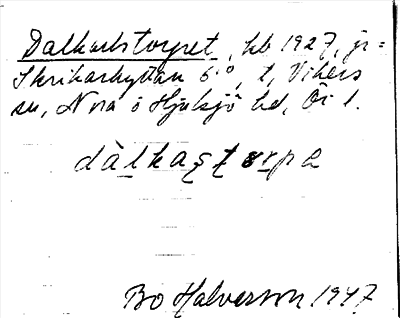 Dalkarlstorpet, hb 1927, jr =
Skrikarhyttan 6¹⁰, t, Vikers
sn, Nora o Hjulsjö hd, Ör l.
dàlkaʂʈɵrpə
Bo Halvarson 1947